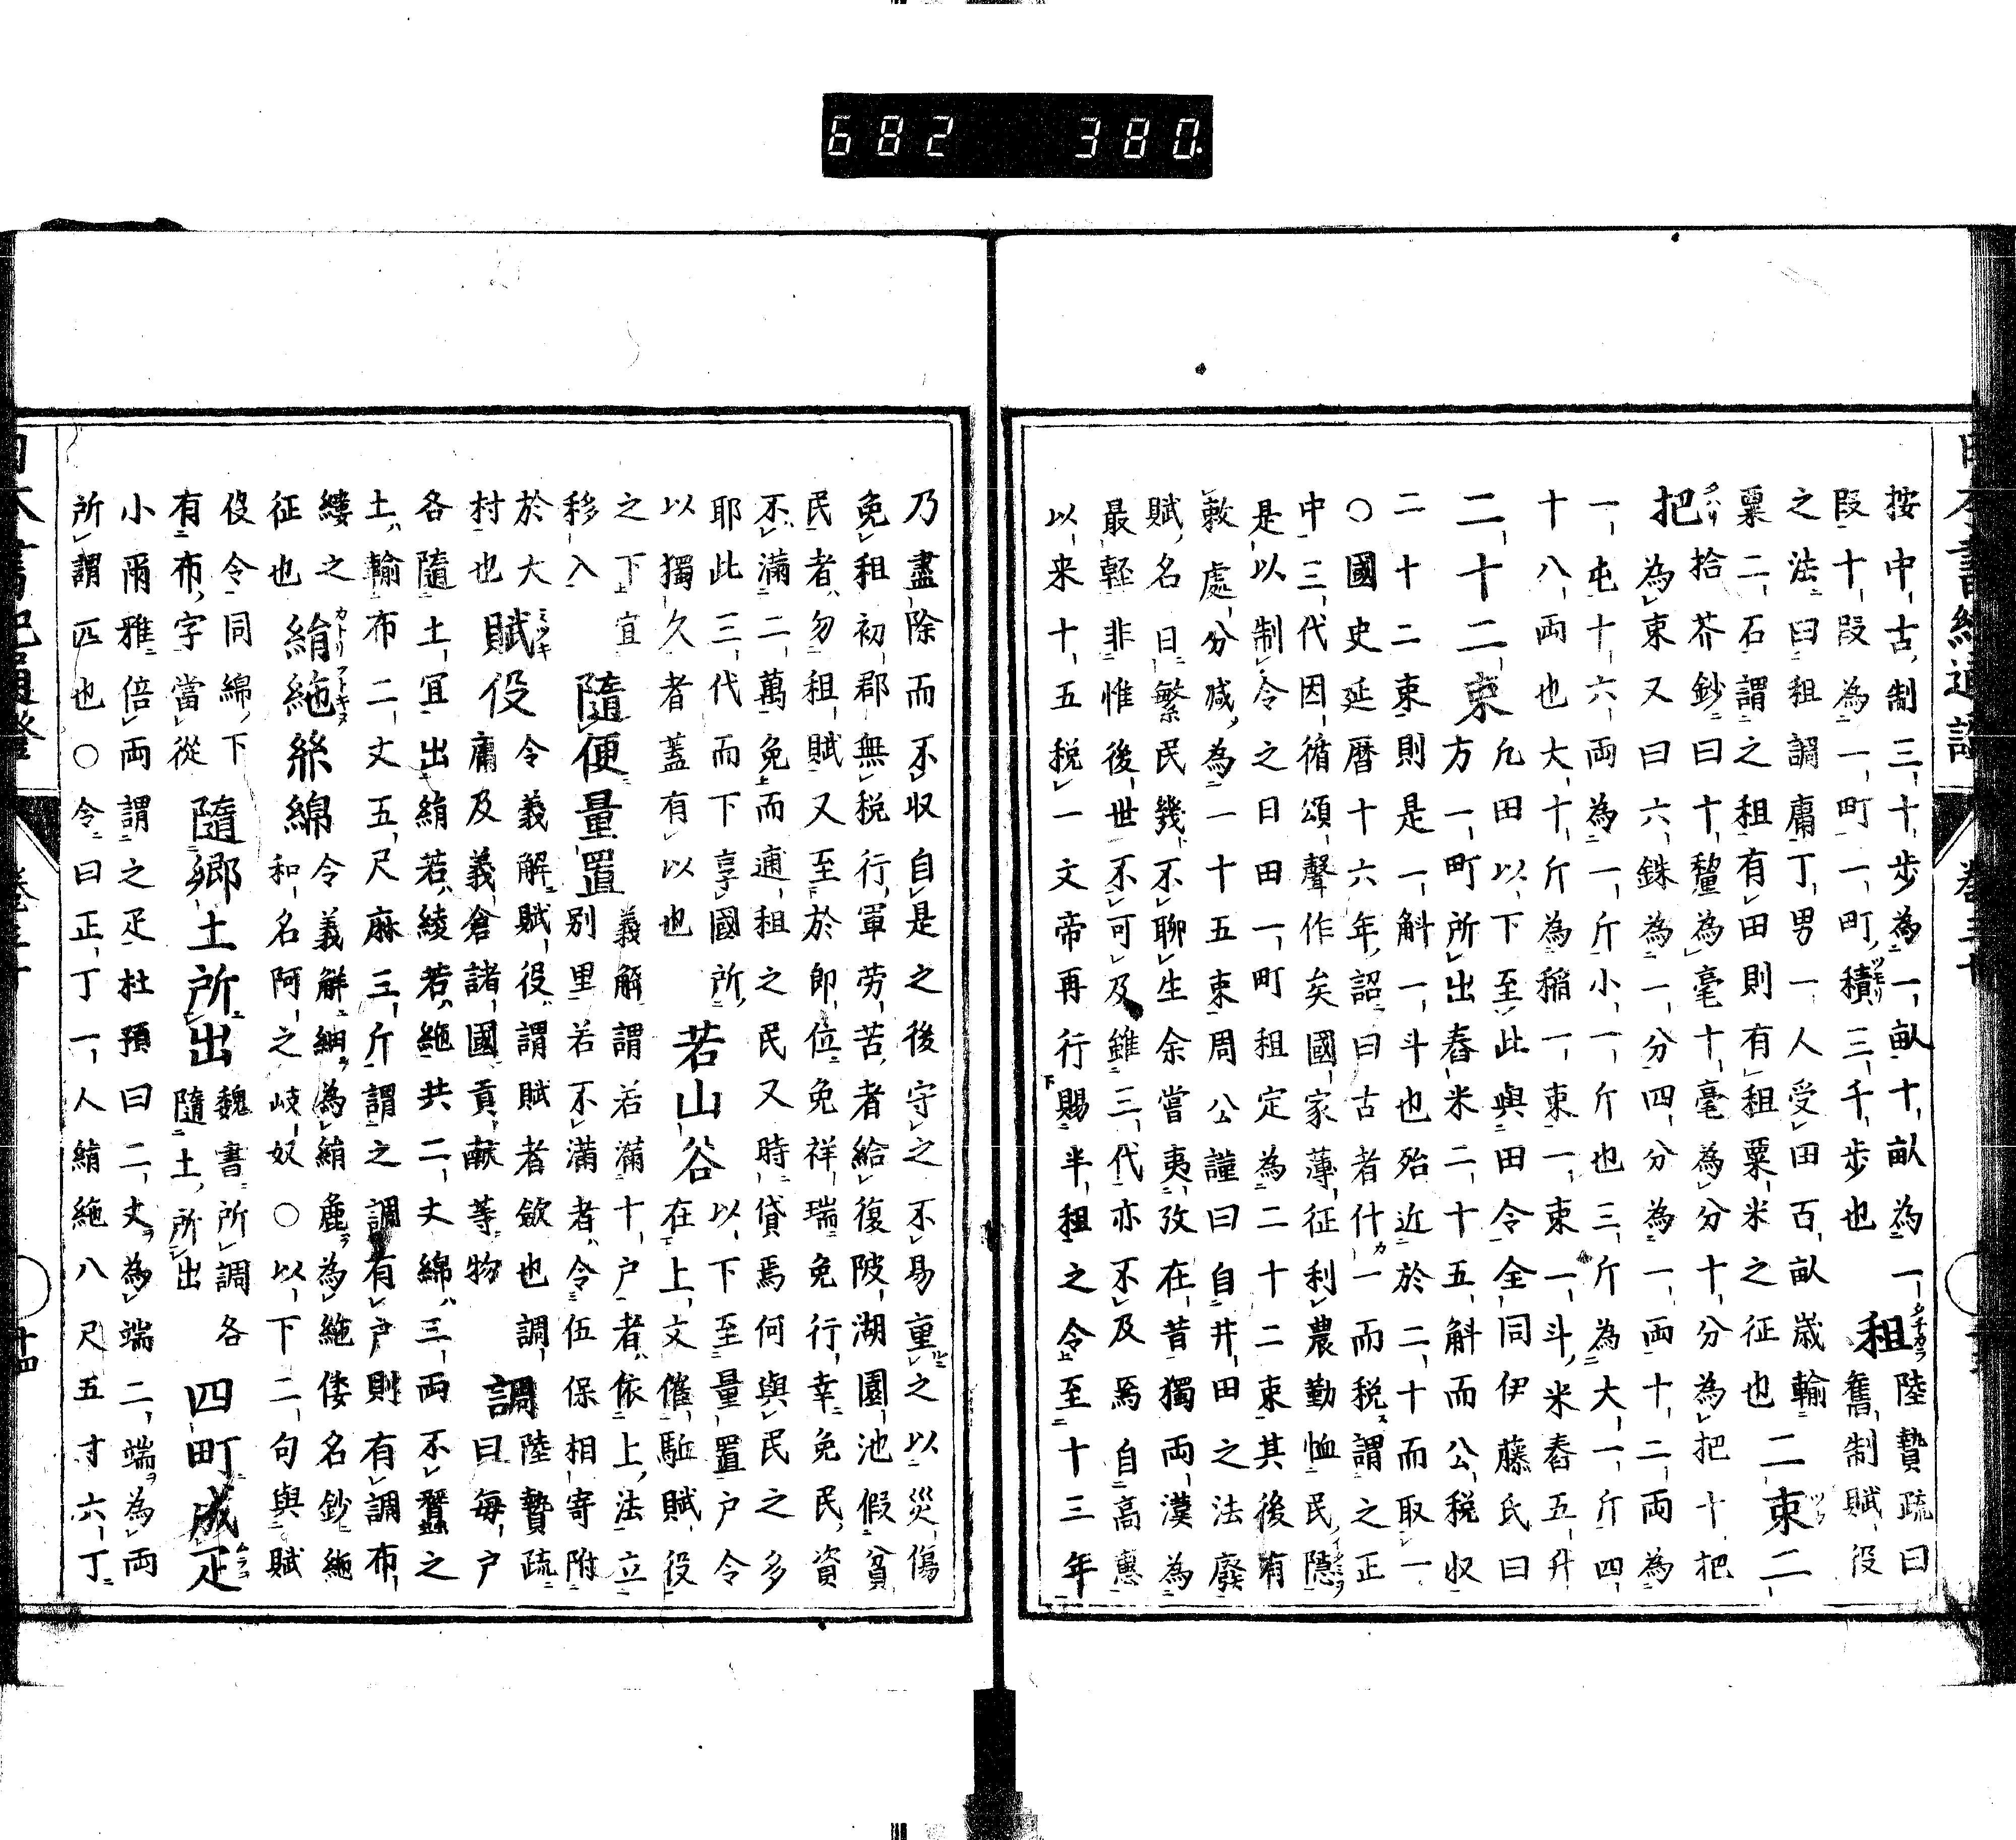 按中古制三十歩為一畝十畝為一
段十段為一町一町積三千歩也
租
陸贄疏曰
舊制賦役
之法曰租調庸丁男一人受田百畝歳輸
粟二石謂之租有田則有租粟米之征也
二束二
把
拾芥鈔曰十釐為毫十毫為分十分為把十把
為束又曰六銖為一分四分為一両十二両為
一屯十六両為一斤小一斤也三斤為大一斤四
十八両也大十斤為稲一束一束一斗米舂五升
二十二束
凢田以下至此與田令全同伊藤氏曰
方一町所出舂米二十五斛而公税収
二十二束則是一斛一斗也殆近於二十而取一
〇國史延暦十六年詔曰古者什一而税謂之正
中三代因循頌聲作矣國家薄征利農勤恤民隠
是以制令之日田一町租定為二十二束其後有
敕處分减為一十五束周公謹曰自井田之法廢
賦名日繁民幾不聊生余嘗夷攷在昔獨両漢為
最軽非惟後世不可及雖三代亦不及焉自高惠
以来十五税一文帝再行賜半租之令至十三年
乃盡除而不収自是之後守之不易重之以災傷
免租初郡無税行軍劳苦者給復陂湖園池假貧
民者勿租賦又至於即位免祥瑞免行幸免民資
不滿二萬免而逋租之民又時貸焉何與民之多
耶此三代而下享國所
以獨久者蓋有以也
若山谷
以下至量置戸令
在上文催駈賦役
之下宜
移入
隨便量置
義解謂若滿十戸者依上法立
別里若不滿者令伍保相寄附
於大
村也
賦役
令義解賦役謂賦者斂也調
庸及義倉諸國貢献等物
調
陸贄疏
曰毎戸
各隨土宜出絹若綾若絁共二丈綿三両不蠶之
土輸布二丈五尺麻三斤謂之調有戸則有調布
縷之
征也
絹絁絲綿
令義解細為絹麁為絁倭名鈔絁
和名阿之岐奴〇以下二句與賦
役令同綿下
有布字當從
隨郷土所出
魏書所調各
隨土所出
四町成疋
小爾雅倍両謂之疋杜預曰二丈為端二端為両
所謂匹也〇令曰正丁一人絹絁八尺五寸六丁
682 380